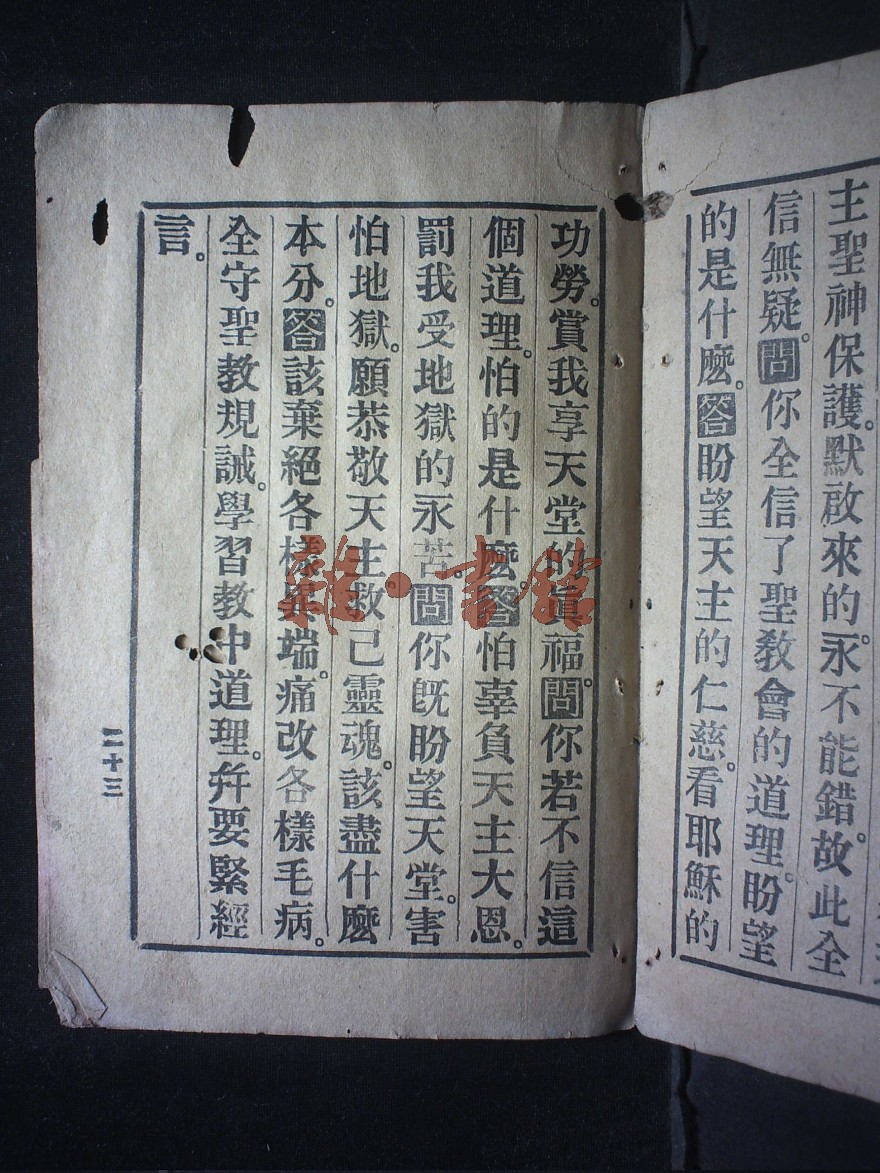 主聖神保護。默啟來的。永不能錯。故此全
信無疑。問你全信了聖教會的道理。盼望
的是什麽。答盼望天主的仁慈。看耶穌的
功勞。賞我享天堂的眞福。問你若不信這
個道理。怕的是什麽。答怕辜負天主大恩。
罰我受地獄的永苦。問你旣盼望天堂。害
怕地獄。願恭敬天主。救己靈魂。該盡什麽
本分。答該棄絕各樣異端。痛改各樣毛病。
全守聖教規誡。學習教中道理。幷要緊經
言。
二十三
雜·書館